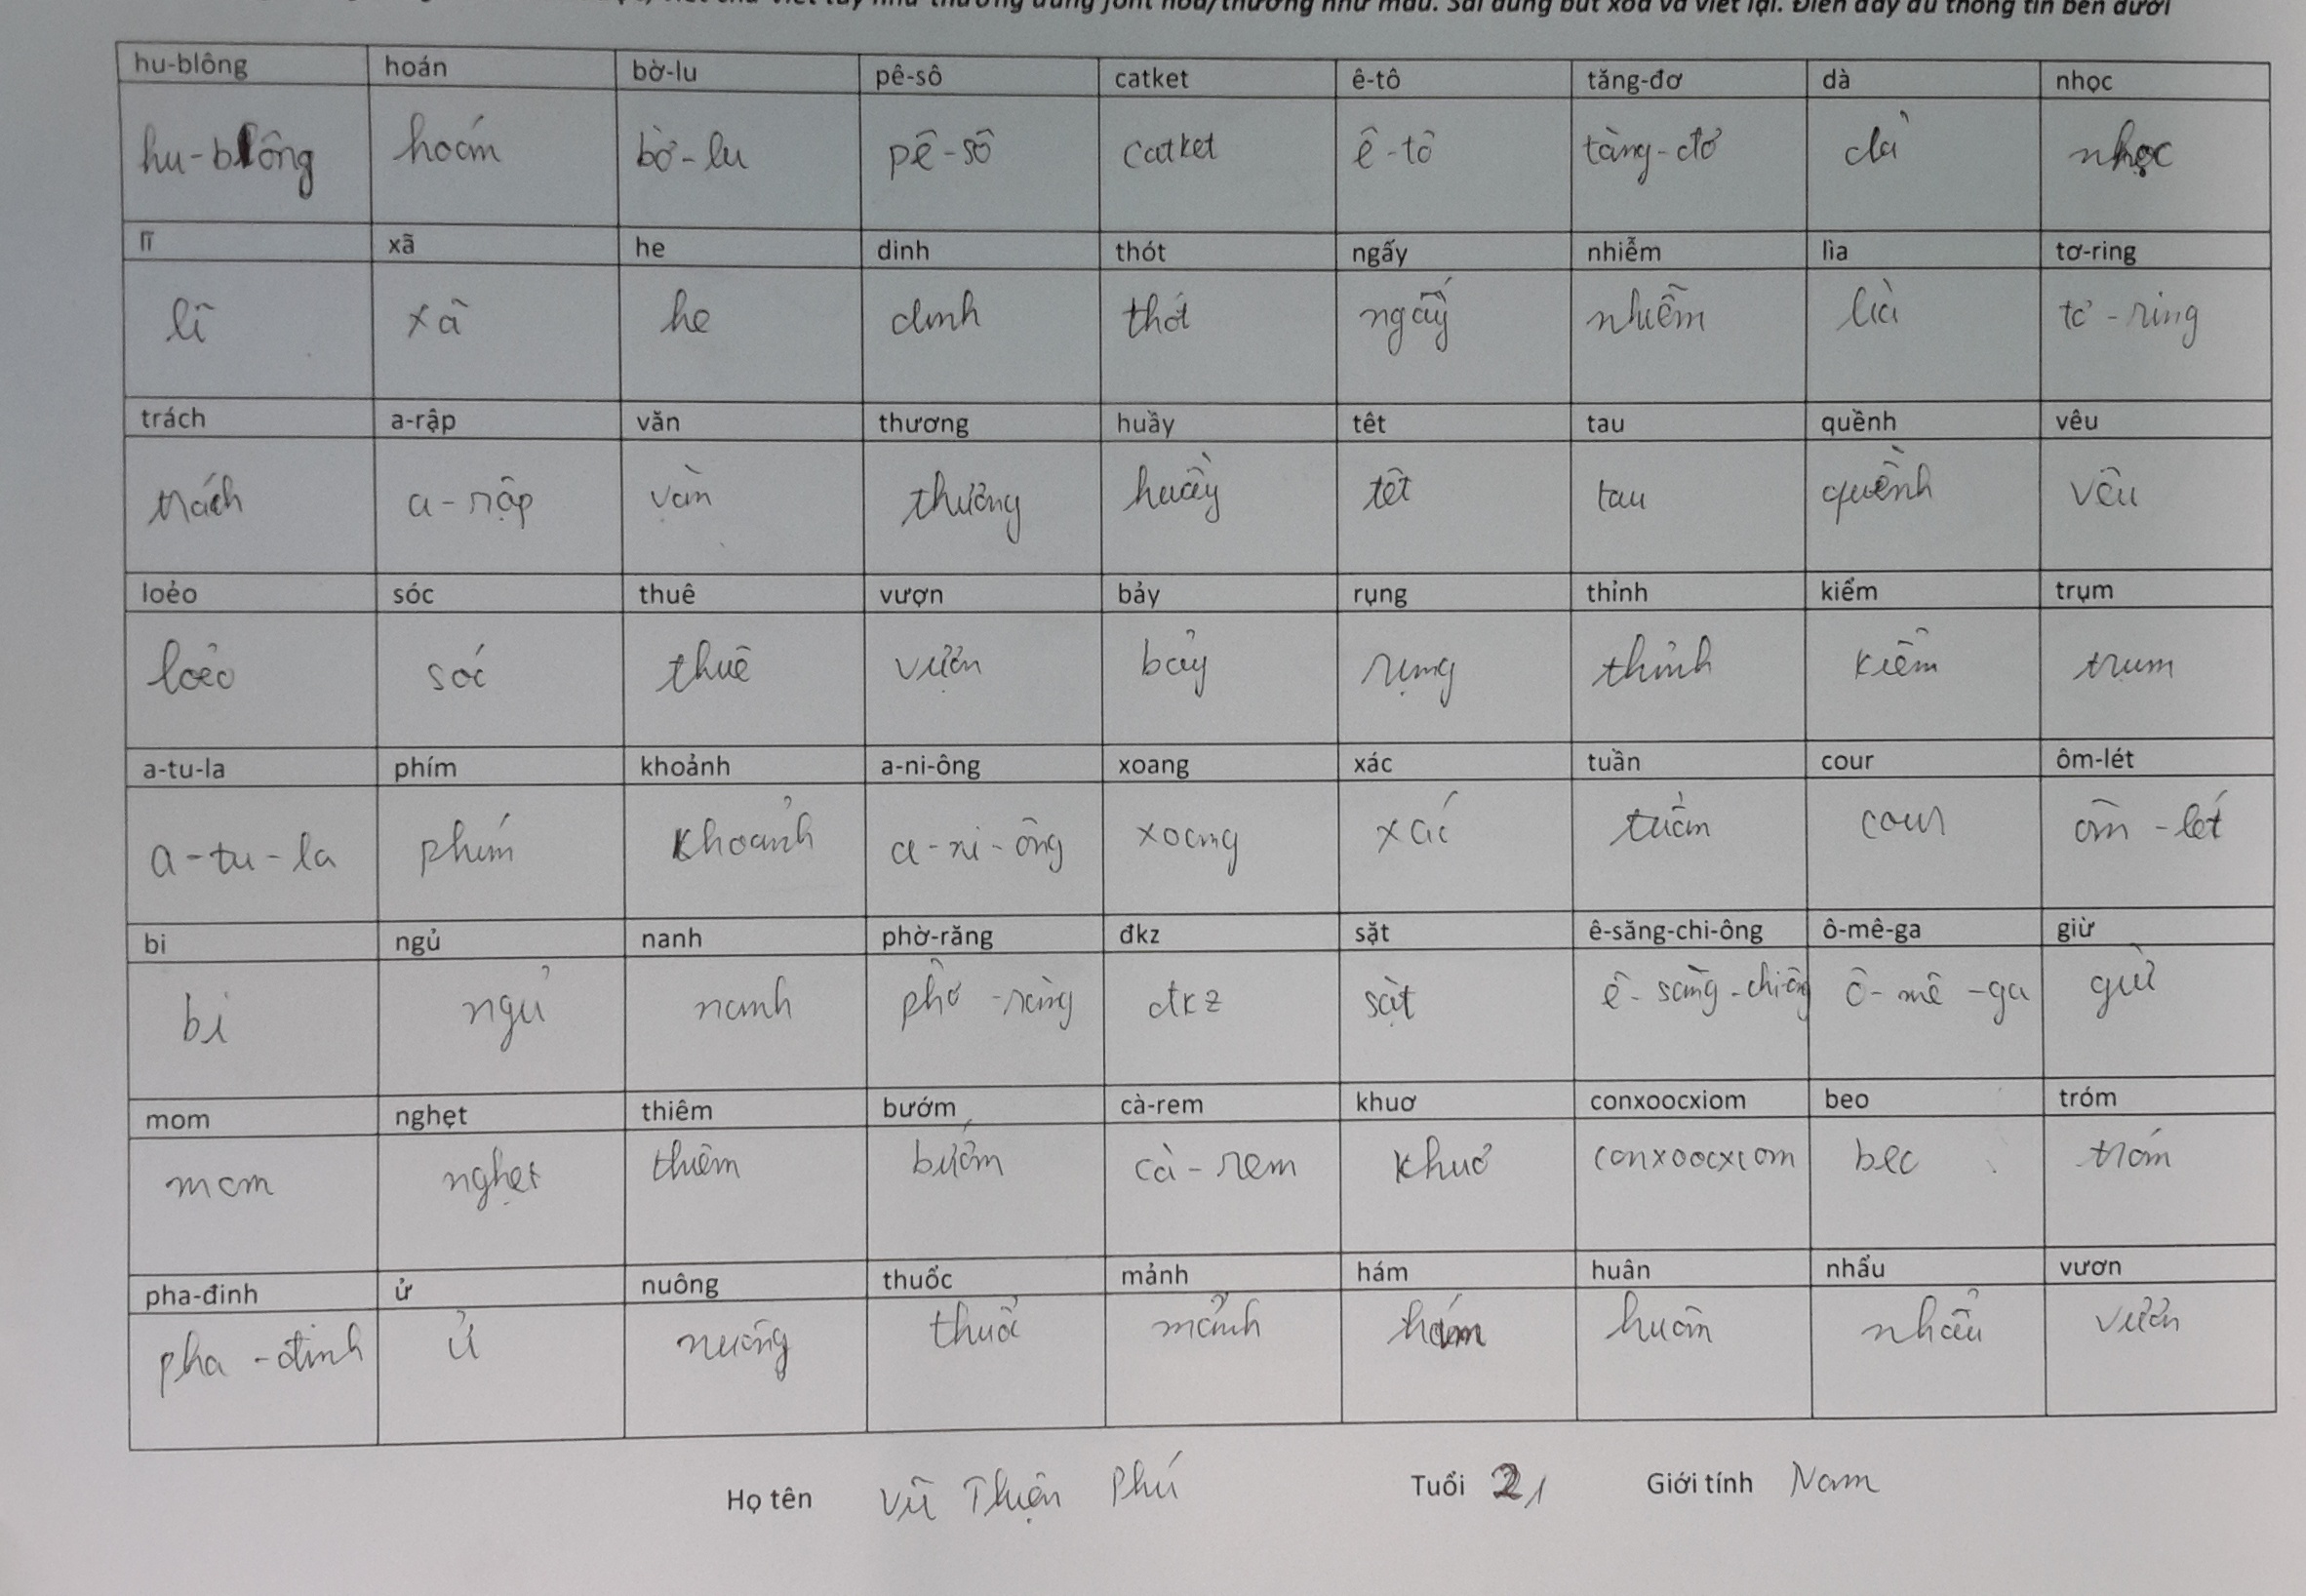 viết chữ viết tay như thường dùng font hoa/thường như mẫu. Sai dùng bút xoá và viết lại. Điền đầy đủ thông tin bên dưới
hu-blông hoán bờ-lu pê-sô catket ê-tô tăng-đơ dà nhọc
hu-blông hoán bờ-lu pê-sô catket ê-tô tăng-đơ dà nhọc
lĩ xã he dinh thót ngấy nhiễm lìa tơ-ring
lĩ xã he dinh thót ngấy nhiễm lìa tơ-ring
trách a-rập văn thương huầy têt tau quềnh vêu
trách a-rập văn thương huầy têt tau quềnh vêu
loẻo sóc thuê vượn bảy rụng thỉnh kiểm trụm
loẻo sóc thuê vượn bảy rụng thỉnh kiểm trụm
a-tu-la phím khoảnh a-ni-ông xoang xác tuần cour ôm-lét
a-tu-la phím khoảnh a-ni-ông xoang xác tuần cour ôm-lét
bi ngủ nanh phờ-răng đkz sặt ê-săng-chi-ông ô-mê-ga giừ
bi ngủ nanh phờ-răng đkz sặt ê-săng-chi-ông ô-mê-ga giừ
mom nghẹt thiêm bướm cà-rem khuơ conxoocxiom beo tróm
mom nghẹt thiêm bướm cà-rem khuơ conxoocxiom beo tróm
pha-đinh ử nuông thuốc mảnh hám huân nhẩu vươn
pha-đinh ử nuông thuốc mảnh hám huân nhẩu vươn
Họ tên Vũ Thiện Phú Tuổi 21 Giới tính Nam